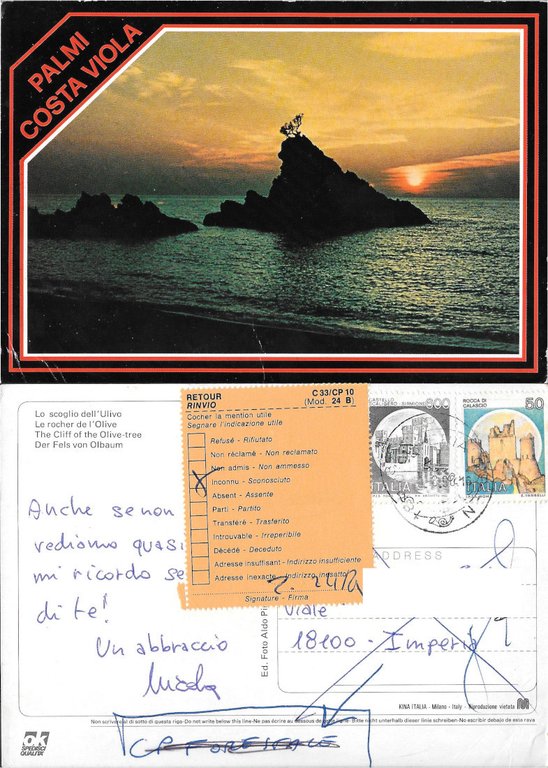 PALMI
COSTA VIOLA
Lo scoglio dell'Ulivo
Le rocher de l'Olive
The Cliff of the Olive-tree
Der Fels von Olbaum
RETOUR
RINVIO
C 33/CP 10
(Mod. 24 B)
Cocher la mention utile
Segnare l'indicazione utile
Refusé - Rifiutato
Non réclamé - Non reclamato
Non admis - Non ammesso
Inconnu - Sconosciuto
Absent - Assente
Parti - Partito
Transféré - Trasferito
Introuvable - Irreperibile
Décédé - Deceduto
Adresse insuffisant - Indirizzo insufficiente
Adresse inexacte - Indirizzo inesatto
Signature - Firma
ITALIA
ROCCA DI
CALASCIO
50
ITALIA
ADDRESS
Anche se non
vediamo quasi
mi ricordo se
di te!
Un abbraccio
Viale
18100 - Imperia
Ed. Foto Aldo
KINA ITALIA - Milano - Italy - Riproduzione vietata
Non scrivere al di sotto di questa riga - Do not write below this line - Ne pas écrire au dessous de
Bitte nicht unterhalb dieser linie schreiben - No escribir debajo de esta raya
OK
SPEDISCI
QUALITÀ
CP FORESTALE